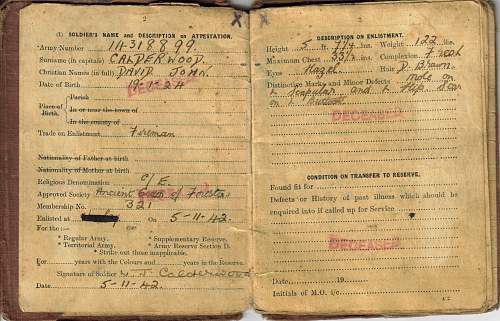 2
(I) SOLDIER'S NAME and DESCRIPTION on ATTESTATION.
*Army Number 14318899.
Surname (in capitals) CALDERWOOD.
Christian Names (in full) DAVID JOHN.
Date of Birth
DECEASED
Place of Birth.
Parish
In or near the town of
In the county of
Trade on Enlistment Fireman
Nationality of Father at birth
Nationality of Mother at birth
Religious Denomination C/E.
Approved Society Ancient Order of
Membership No. 321
Enlisted at On 5-11-42.
For the :—
* Regular Army. * Supplementary Reserve.
* Territorial Army. * Army Reserve Section D.
* Strike out those inapplicable.
For years with the Colours and years in the Reserve.
Signature of Soldier Calderwood
Date 5-11-42.
X
X
2
DESCRIPTION ON ENLISTMENT.
Height 5 ft. ins. Weight 122 lbs.
Maximum Chest ins. Complexion Fresh
Eyes Hazel Hair D. Brown
Distinctive Marks and Minor Defects mole on
L scapular and L Hip. Scar
on L Buttock
DECEASED
CONDITION ON TRANSFER TO RESERVE.
Found fit for
Defects or History of past illness which should be
enquired into if called up for Service
DECEASED
Date 19
Initials of M.O. i/c